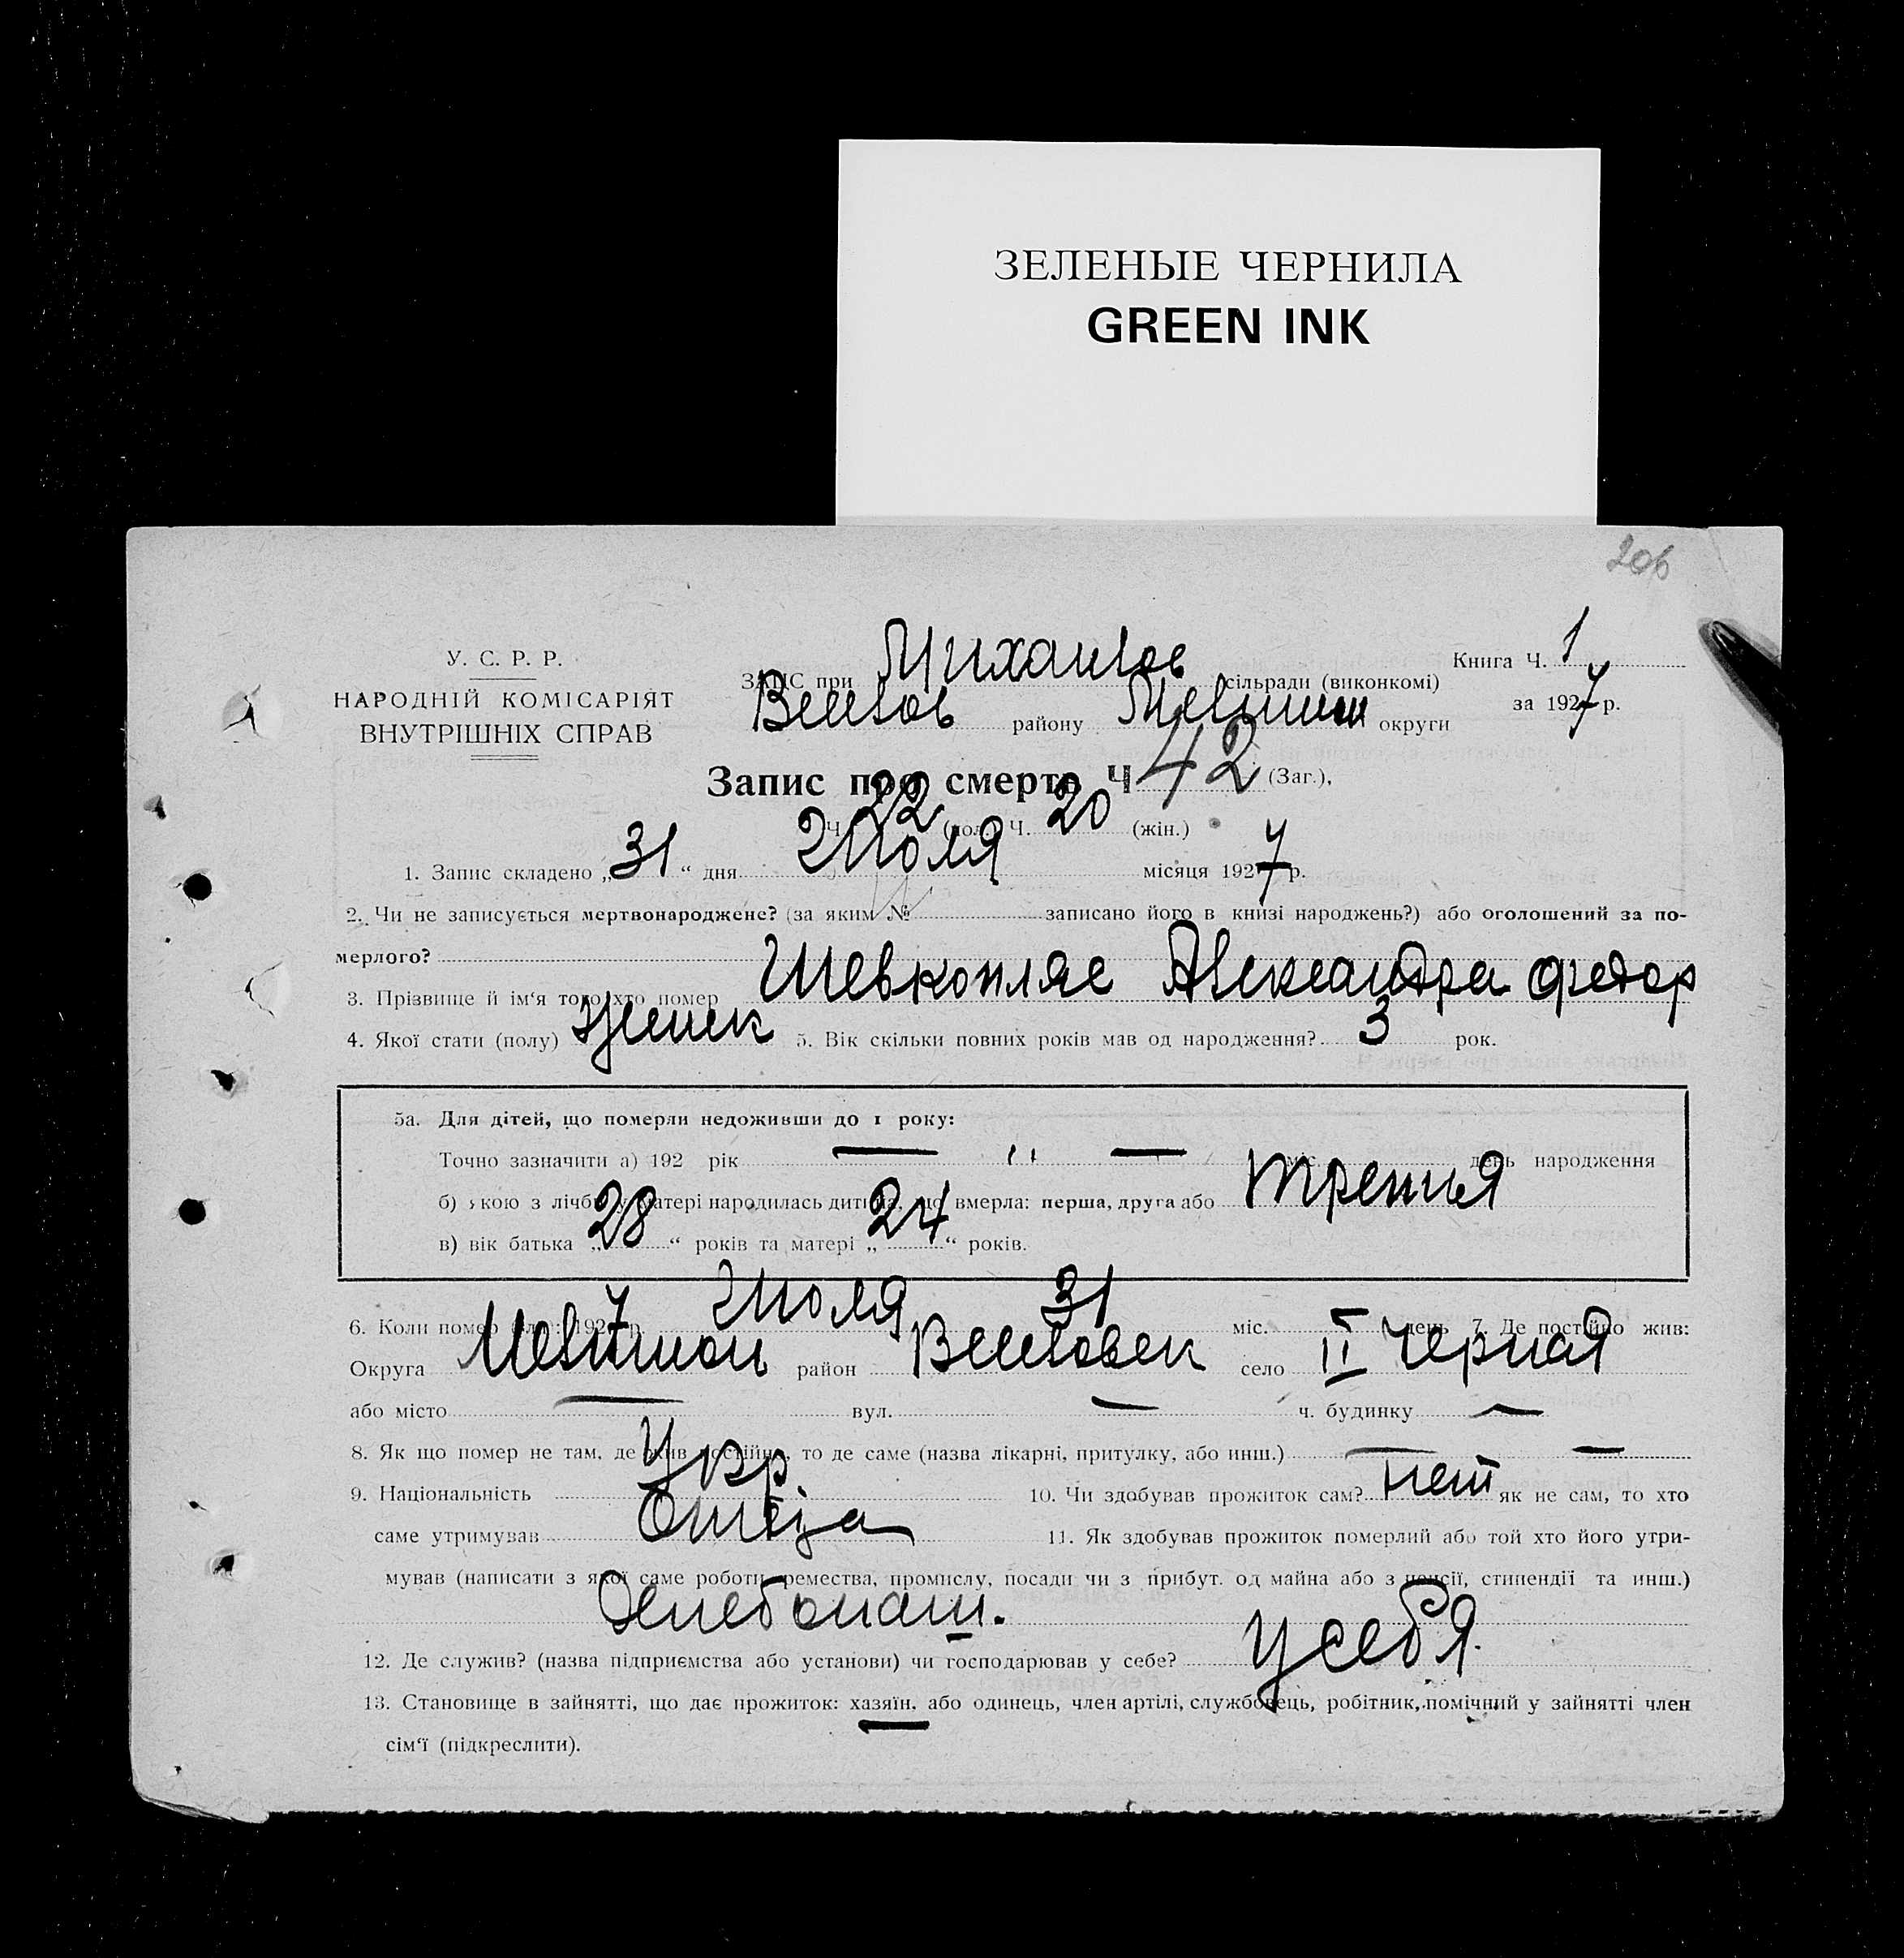 ЗЕЛЕНЫЕ ЧЕРНИЛА
GREEN INK
206
У. С. Р. Р.
НАРОДНІЙ КОМІСАРІЯТ
ВНУТРІШНІХ СПРАВ
ЗАПИС при Михайлов сільради (виконкомі)
району округи
Книга Ч. 1
за 1927 р.
Запис про смерть Ч 42 (Заг.),
Ч. 22 (чол.) Ч. 20 (жін.)
1. Запис складено „31“ дня Июля місяця 1927 р.
2. Чи не записується мертвонароджене? (за яким № записано його в книзі народжень?) або оголошений за по-
мерлого?
3. Прізвище й ім'я того, хто помер Шевкопляс Александра Федор
4. Якої стати (полу) женск 5. Вік скільки повних років мав од народження? 3 рок.
5а. Для дітей, що померли недоживши до 1 року:
Точно зазначити а) 192 рік — " — міс. день народження
б) якою з лічби у матері народилась дитина, що вмерла: перша, друга або третья
в) вік батька „28“ років та матері „24“ років.
6. Коли помер(ла): 1927 р. Июля міс. 31 день 7. Де постійно жив:
Округа район село ІІ Черная
або місто — вул. — ч. будинку —
8. Як що помер не там, де жив постійно, то де саме (назва лікарні, притулку, або инш.) — —
9. Національність Укр 10. Чи здобував прожиток сам? нет як не сам, то хто
саме утримував Отец 11. Як здобував прожиток померлий або той хто його утри-
мував (написати з якої саме роботи, ремества, промислу, посади чи з прибут. од майна або з пенсії, стипендії та инш.)
Хлебопаш.
12. Де служив? (назва підприємства або установи) чи господарював у себе? у себя.
13. Становище в зайнятті, що дає прожиток: хазяїн, або одинець, член артілі, службовець, робітник, помічний у зайнятті член
сім'ї (підкреслити).